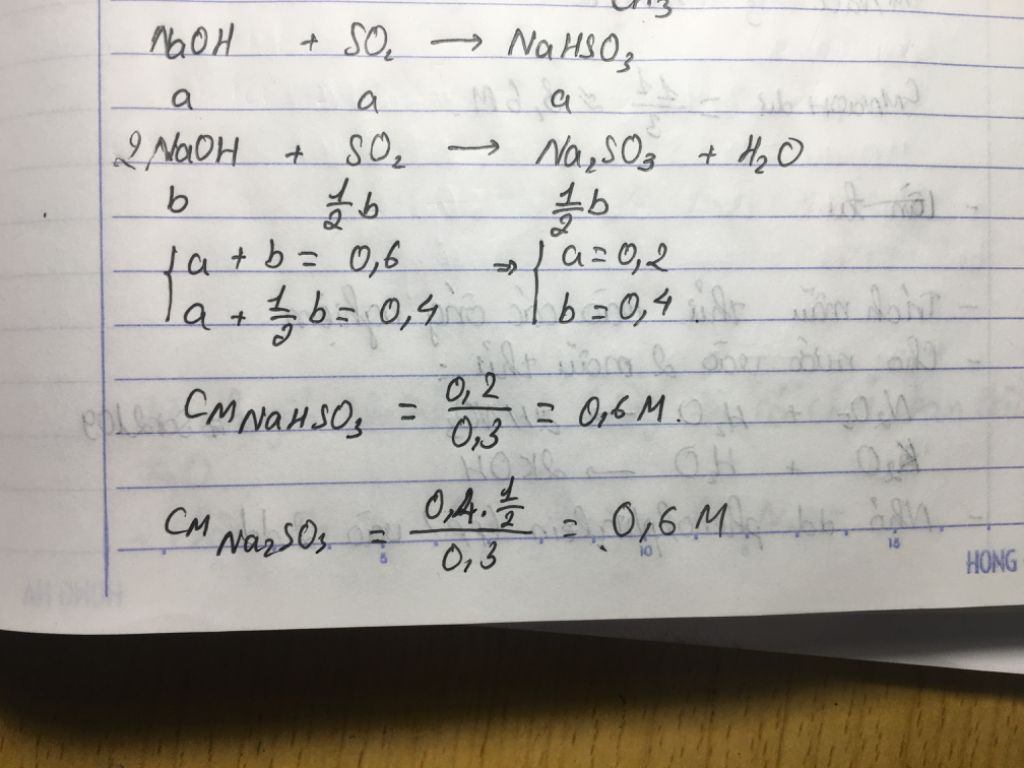 CH3
NaOH + SO₂ → NaHSO₃
a a a
2NaOH + SO₂ → Na₂SO₃ + H₂O
b 1/2 b 1/2 b
{ a + b = 0,6 ⇒ { a = 0,2
a + 1/2 b = 0,4 b = 0,4
CM NaHSO₃ = 0,2/0,3 = 0,6 M.
CM Na₂SO₃ = 0,4 . 1/2 / 0,3 = 0,6 M
5 10 15
HONG